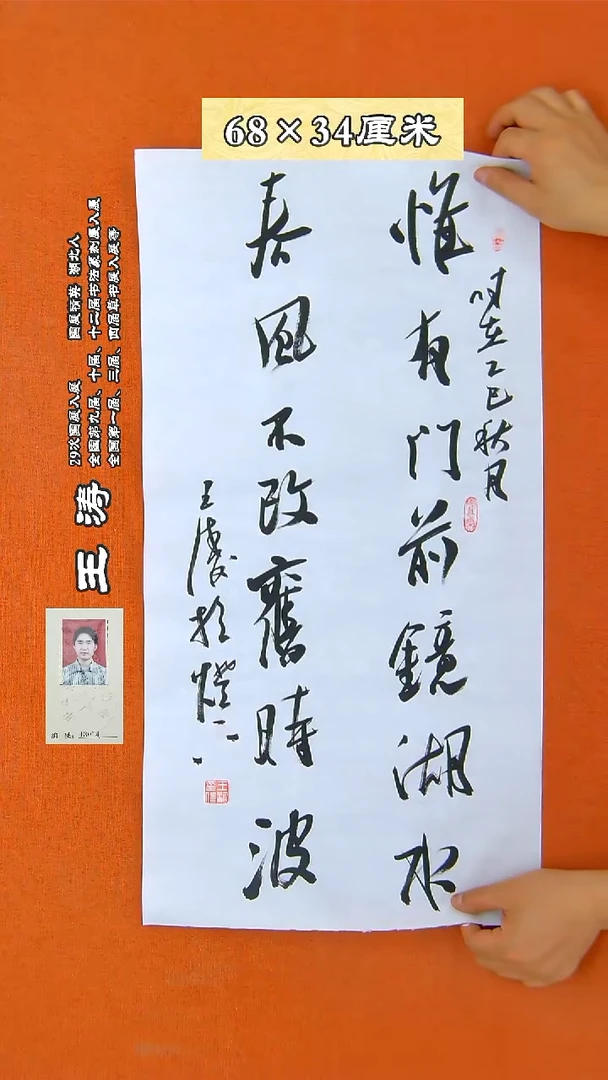 68×34厘米
惟有门前鏡湖水
时在乙巳秋月
春風不改舊時波
王涛
29次国展入展 国展精英 湖北人
全国第九届、十届、十二届书法篆刻展入展
全国第一届、三届、四届草书展入展等